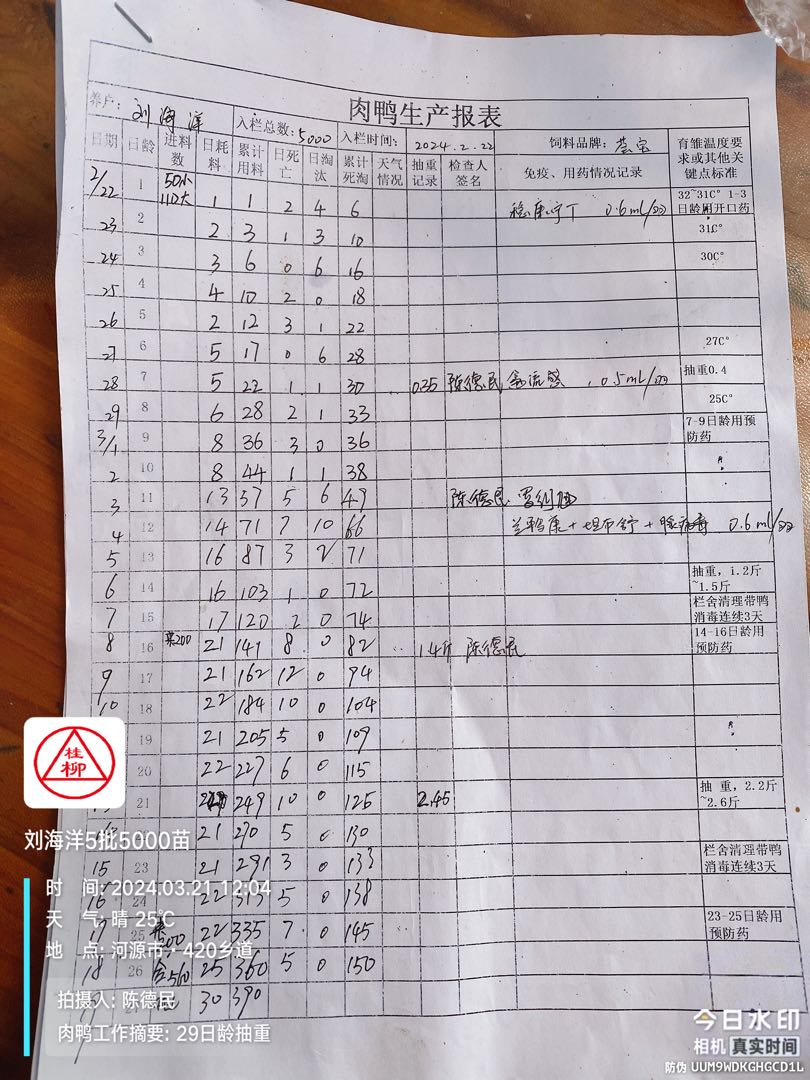 肉鸭生产报表
养户: 刘海洋 入栏总数: 5000 入栏时间: 2024.2.22 饲料品牌: 育雏温度要求或其他关键点标准
日期 日龄 进料数 日耗料 累计用料 日死亡 日淘汰 累计死淘 天气情况 抽重记录 检查人签名 免疫、用药情况记录
2/22 1 50小 110大 1 1 2 4 6 0.6ml/羽 32~31C° 1-3日龄用开口药
23 2 2 3 1 3 10 31C°
24 3 3 6 0 6 16 30C°
25 4 4 10 2 0 18
26 5 2 12 3 1 22
27 6 5 17 0 6 28 27C°
28 7 5 22 1 1 30 0.35 陈德民 禽流感 0.5ml/羽 抽重0.4
29 8 6 28 2 1 33 25C°
3/1 9 8 36 3 0 36 7-9日龄用预防药
2 10 8 44 1 1 38
3 11 13 57 5 6 49 陈德民
4 12 14 71 7 10 66 0.6ml/羽
5 13 16 87 3 2 71
6 14 16 103 1 0 72 抽重，1.2斤~1.5斤
7 15 17 120 2 0 74 栏舍清理带鸭消毒连续3天
8 16 200 21 141 8 0 82 1.4斤 陈德民 14-16日龄用预防药
9 17 21 162 12 0 94
10 18 22 184 10 0 104
19 21 205 5 0 109
20 22 227 6 0 115
21 249 10 0 125 2.45 抽 重，2.2斤~2.6斤
21 270 5 0 130
15 23 21 291 3 0 133 栏舍清理带鸭消毒连续3天
16 24 22 313 5 0 138
17 25 22 335 7 0 145 23-25日龄用预防药
18 26 25 360 5 0 150
30 390
桂柳
刘海洋5批5000苗
时 间: 2024.03.21 12:04
天 气: 晴 25℃
地 点: 河源市，420乡道
拍摄人: 陈德民
肉鸭工作摘要: 29日龄抽重
今日水印
相机 真实时间
防伪 UUM9WDKGHGCD1L